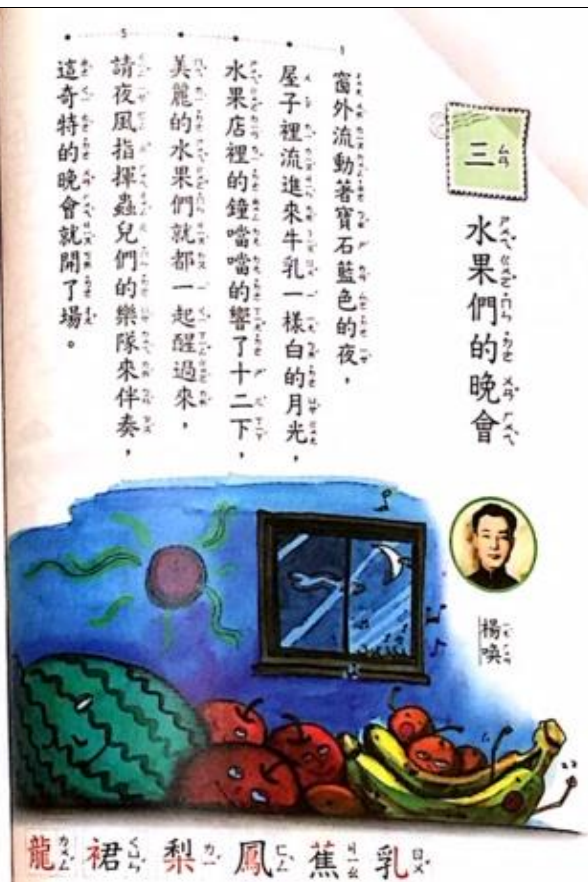 三
水果們的晚會
楊喚
窗外流動著寶石藍色的夜，
屋子裡流進來牛乳一樣白的月光，
水果店裡的鐘噹噹的響了十二下，
美麗的水果們就都一起醒過來，
請夜風指揮蟲兒們的樂隊來伴奏，
這奇特的晚會就開了場。
乳 蕉 鳳 梨 裙 龍